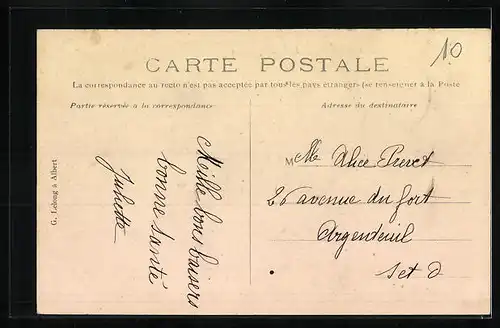 10
CARTE POSTALE
La correspondance au recto n'est pas acceptée par tous les pays étrangers (se renseigner à la Poste
Partie réservée à la correspondance
Adresse du destinataire
Mille bons baisers
bonne santé
Juliette
M Elle Alice
26 avenue du fort
Argenteuil
S et O
G. Lelong à Albert